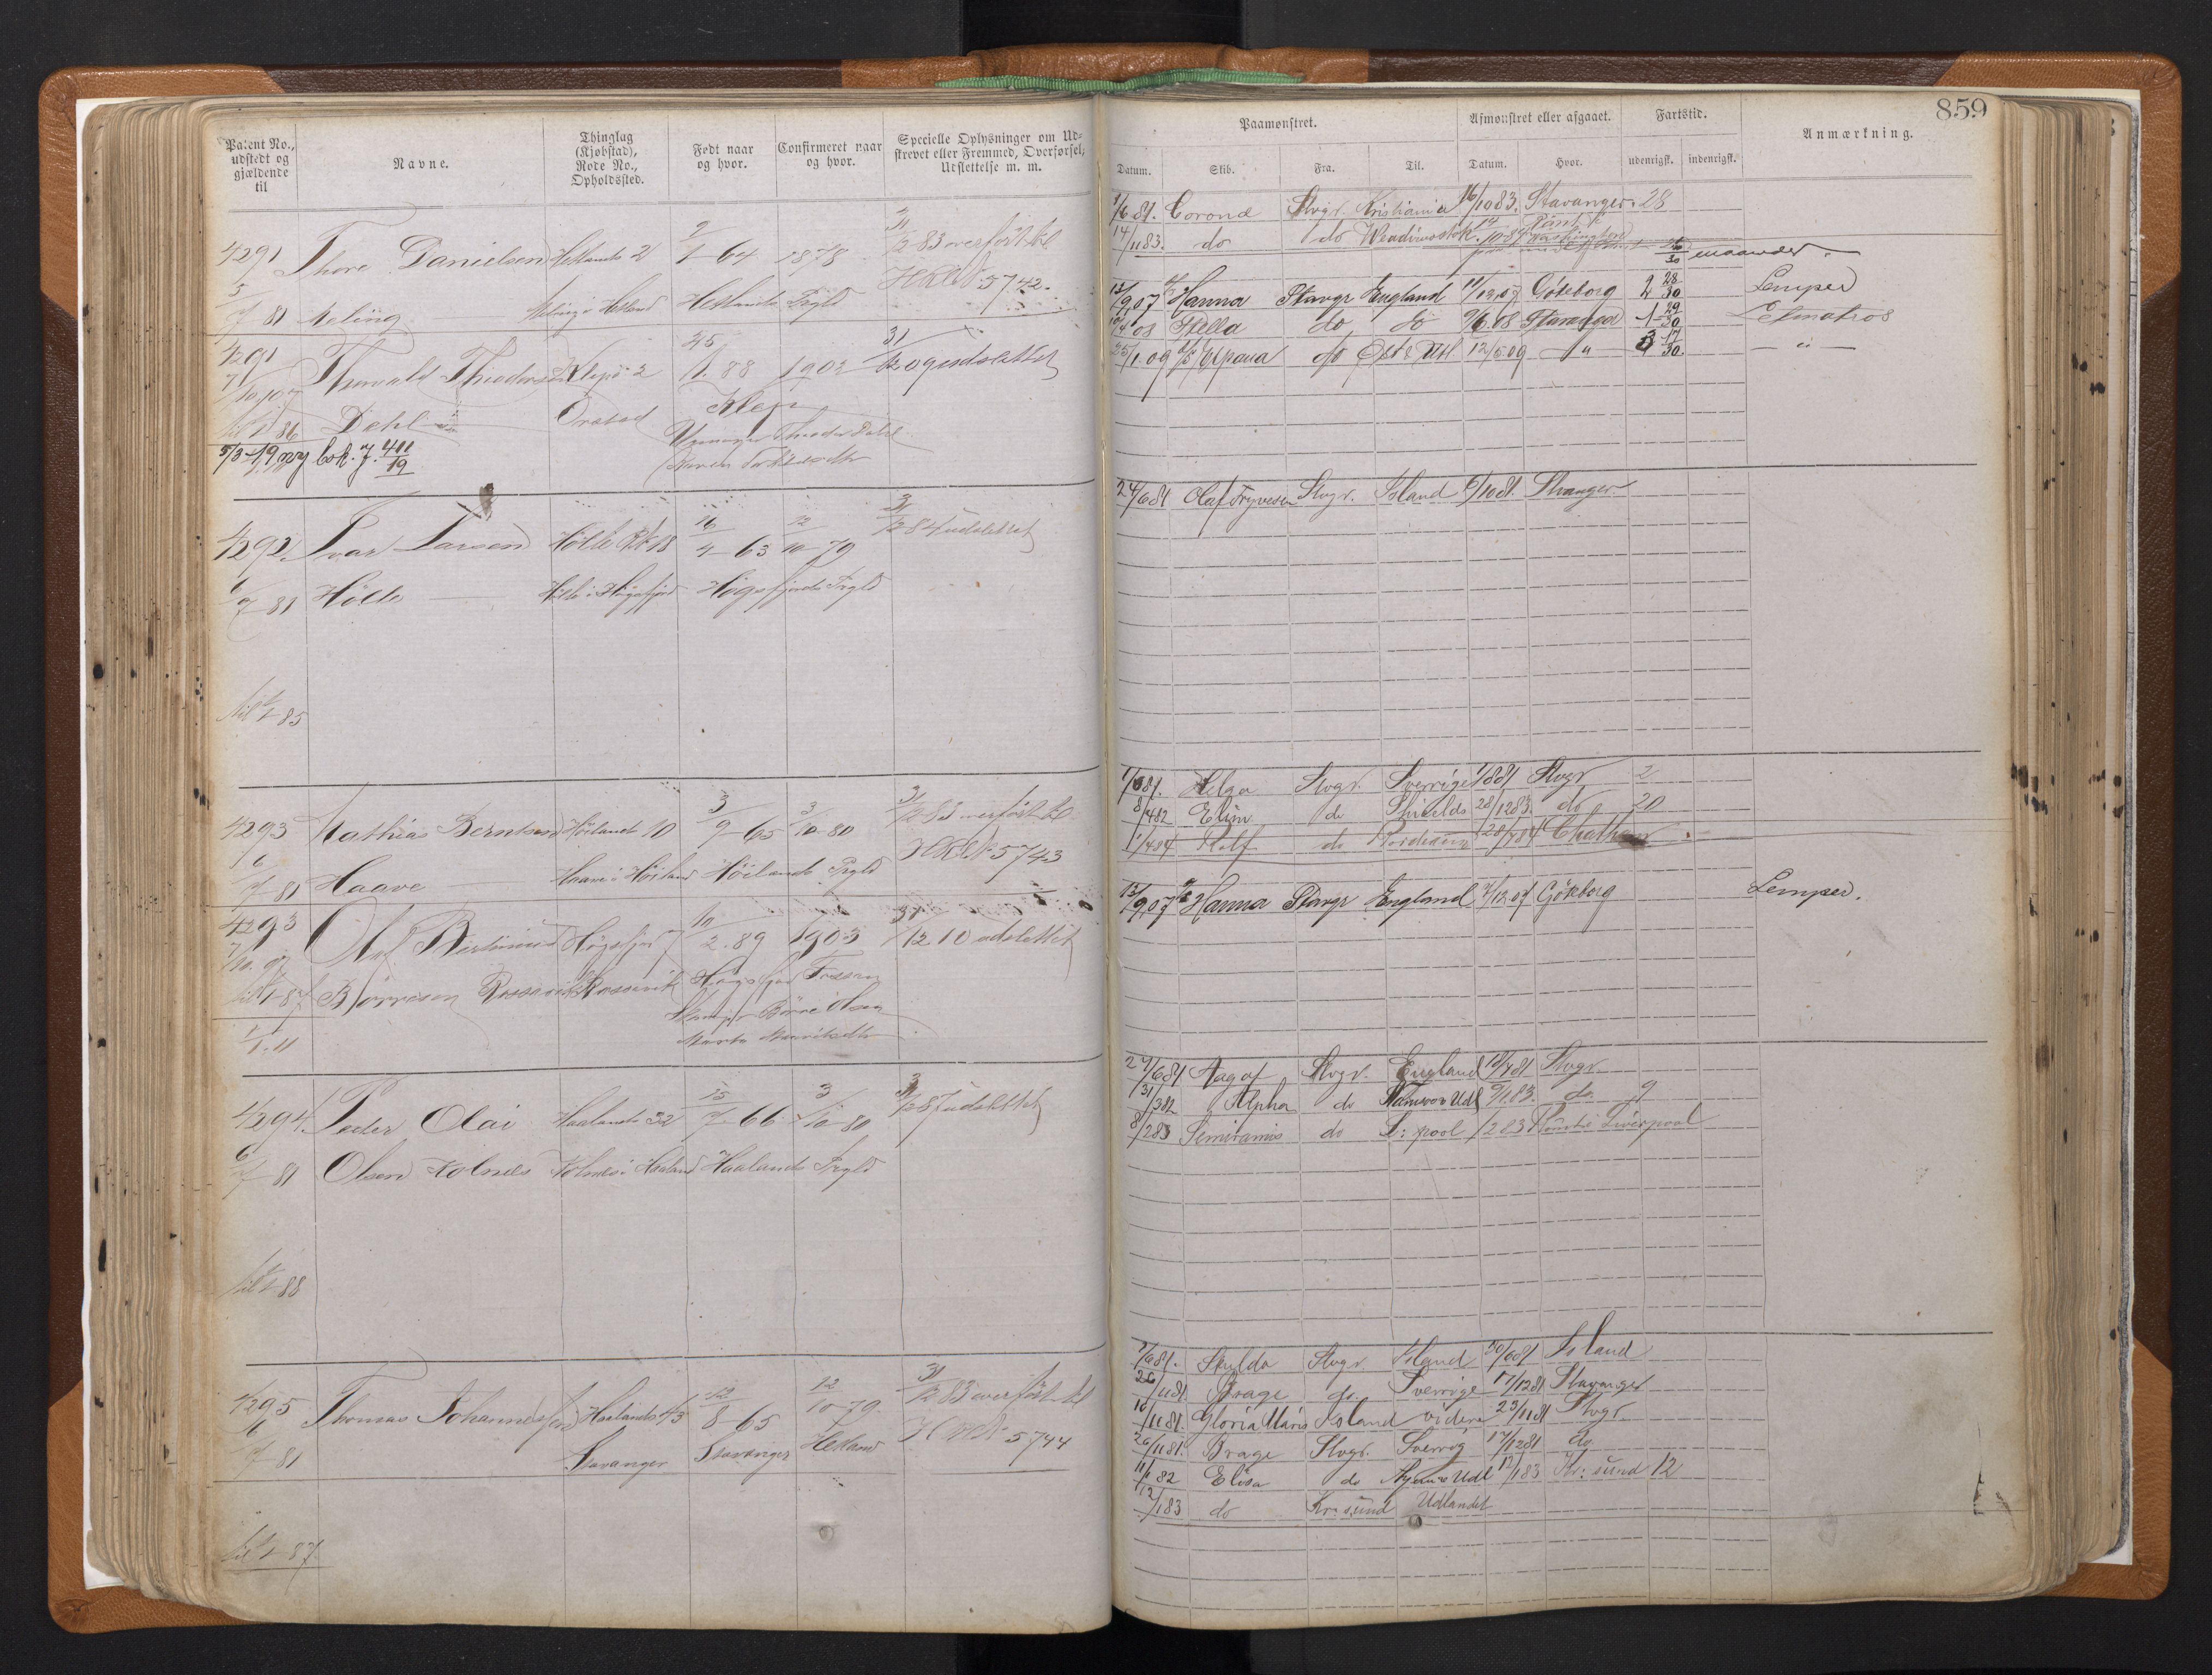 859
Patent No., udstedt og gjældende til
Navne.
Thinglag (Kjøbstad), Rode No., Opholdssted.
Født naar og hvor.
Confirmeret naar og hvor.
Specielle Oplysninger om Udstrevet eller Fremmed, Overførsel, Udslettelse m. m.
4291 Thore Danielsen Hetlands 2 2/1-64 1878 31/12 83 overført til
HRL N 5742.
5/7 81 Meling Meling i Hetland Hetlands Prgld
4291 Thorvald Theodorsen Klep 2 25/1. 88 1903 31/12 09 udslettet
7/10 07 Dehli Orstad Klep
til 1/1 86
5/3-19 ny bok. 7. 411/19
4292. Ivar Larsen Hölle R.N. 18 16/4-63 12/10-79 31/12 84 udslettet
6/7-81 Hölle Hölle i Högsfjord Högsfjords Prgld
til 1/1-85
4293 Mathias Berntsen Höilands 10 3/9-65 3/10-80 31/12 83 overført til
HRL N 5743
6/7-81 Haave Haave i Höiland Höilands Prgld
4293 Olaf Bertinius Högsfjord 7 10/2. 89 1903 31/12 10 udslettet
7/10. 07 Börresen Rossavik Rossavik Högsfjord Fossan
til 1/1-87 Börre Olsen
1/1. 11 Marta
4294. Peder Olai Haalands 32 15/7-66 3/10 80 31/12 87 udslettet
6/7-81 Olsen Kolnes Kolnes i Haaland Haalands Prgld
til 1/1-88
4295 Thomas Johannessen Haalands 43 12/8-65 12/10-79. 31/12 83 overført til
6/7 81 Stavanger Stavanger Hetland HRL N 5744
til 1/1-87
Paamønstret.
Afmønstret eller afgaaet.
Fartstid.
Anmærkning.
Datum. Skib. Fra. Til. Datum. Hvor. udenrigsk. indenrigsk.
1/6 81. Corona Stvgr. Kristiania 16/10 83. Stavanger. 28
14/11 83. do do
maaneder.
13/9 07 Hanna Stavgr England 11/12 07 Göteborg 2 28/30 Lempер
4 08 Stella do do 9/6 08 Stavanger 1 29/30 Letmatros
25/1 09 Alpana do Öst & Utl 12/5 09 — " 3 17/30. — " —
24/6 81 Olaf Trygvesen Stvgr. Island 6/10 81. Stvanger.
1/6 81. Helga Stvgr. Sverrige 1/8 81 Stvgr 2
8/4 82 Elim do Shields 28/12 83. do 20
1/4 84 Rolf do 28/7 84 Chatham
13/9 07 Hanna Stavgr England 11/12 07 Göteborg Lemper.
27/6 81 Aagot Stvgr. England 18/7 81 Stvgr.
31/3 82 Alpha do Udl 9/1 83. do. 9
8/2 83 Semiramis do L:pool /2 83 Römte Liverpool
2/6 81. Skulda Stvgr. Island 30/6 81 Island
26/11 81. Brage do. Sverrige 17/12 81 Stavanger
10/11 81. Gloria Maris Island videre 23/11 81 Stvgr.
26/11 81. Brage Stvgr. Sverrig 17/12 81 do.
11/1 82 Elisa do Udl 12/1 83 Kr: sund 12
12/1 83 do Kr: sund Udlandet